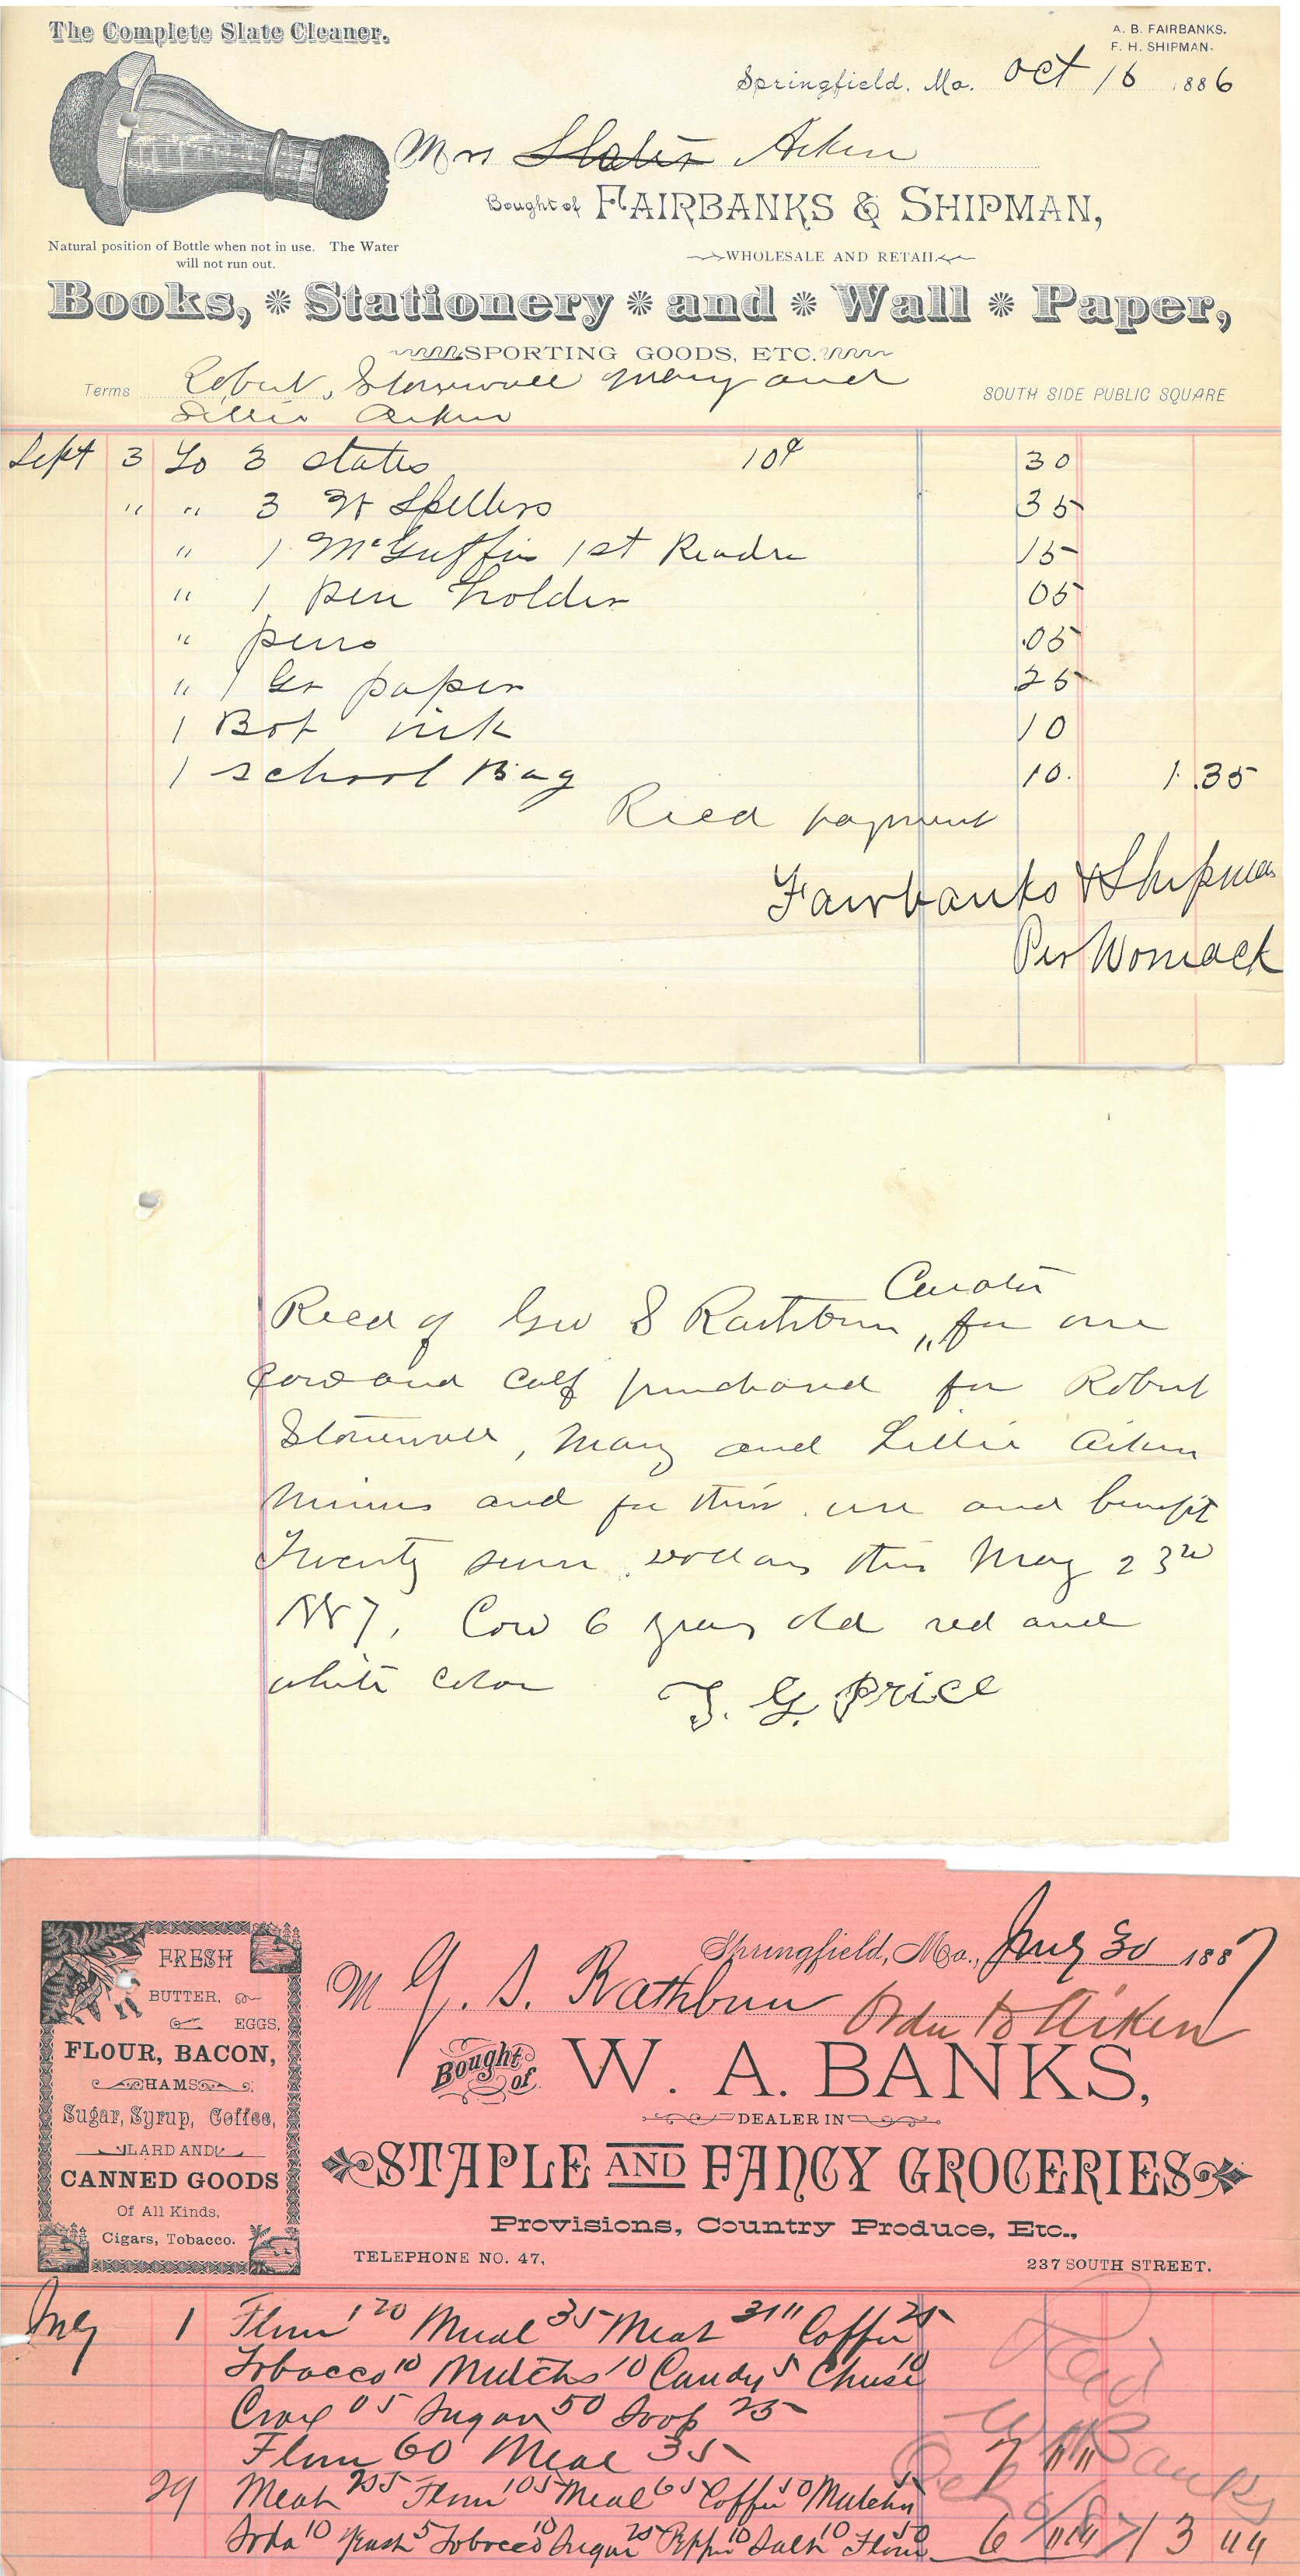 The Complete Slate Cleaner.
A. B. FAIRBANKS.
F. H. SHIPMAN.
Springfield, Mo. Oct 16 1886
Mrs Slater Aiken
Bought of FAIRBANKS & SHIPMAN,
Natural position of Bottle when not in use. The Water
will not run out.
WHOLESALE AND RETAIL
Books, * Stationery * and * Wall * Paper,
SPORTING GOODS, ETC.
Terms Robert, Stonewall Mary and
Lillie Aiken
SOUTH SIDE PUBLIC SQUARE
Sept 3 To 3 slates 10¢ 30
" " 3 Spellers 35
" 1 McGuffin 1st Reader 15
" 1 pen holder 05
" pens .05
" 1 paper 25
1 Bot ink 10
1 school Bag 10. 1.35
Recd payment
Fairbanks & Shipman
Per Womack
Curator
Recd of Geo S Rathbun " for one
cow and calf purchased for Robert
Stonewall, Mary and Lillie Aiken
minors and for their use and benefit
Twenty seven dollars this May 23rd
1887, Cow 6 years old red and
white color T. G. Price
FRESH
BUTTER,
EGGS,
FLOUR, BACON,
HAMS
Sugar, Syrup, Coffee,
LARD AND
CANNED GOODS
Of All Kinds,
Cigars, Tobacco.
Springfield, Mo., July 30 1887
M G. S. Rathbun Order to Aiken
Bought of W. A. BANKS,
DEALER IN
STAPLE AND FANCY GROCERIES
Provisions, Country Produce, Etc.,
TELEPHONE NO. 47,
237 SOUTH STREET.
July 1 Flour 120 Meal 35 Meat Coffee 25
Tobacco 10 Matches 10 Candy 5 Cheese 10
05 Sugar 50 Soap 25
Flour 60 Meal 35 7 """
29 Meat 255 Flour 105 Meal 65 Coffee 50 Matches 5
Soda 10 Yeast 5 Tobacco 10 Sugar 25 Pepper 10 Salt 10 Flour 50 6 """ 13 ""
Paid
W A Banks
Oct 6/87